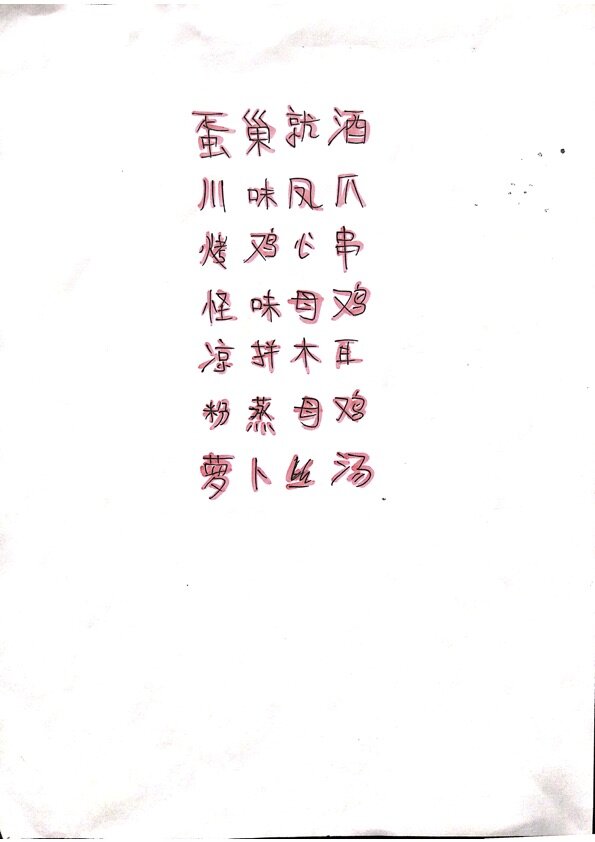 蛋巢就酒
川味凤爪
烤鸡心串
怪味母鸡
凉拌木耳
粉蒸母鸡
萝卜丝汤